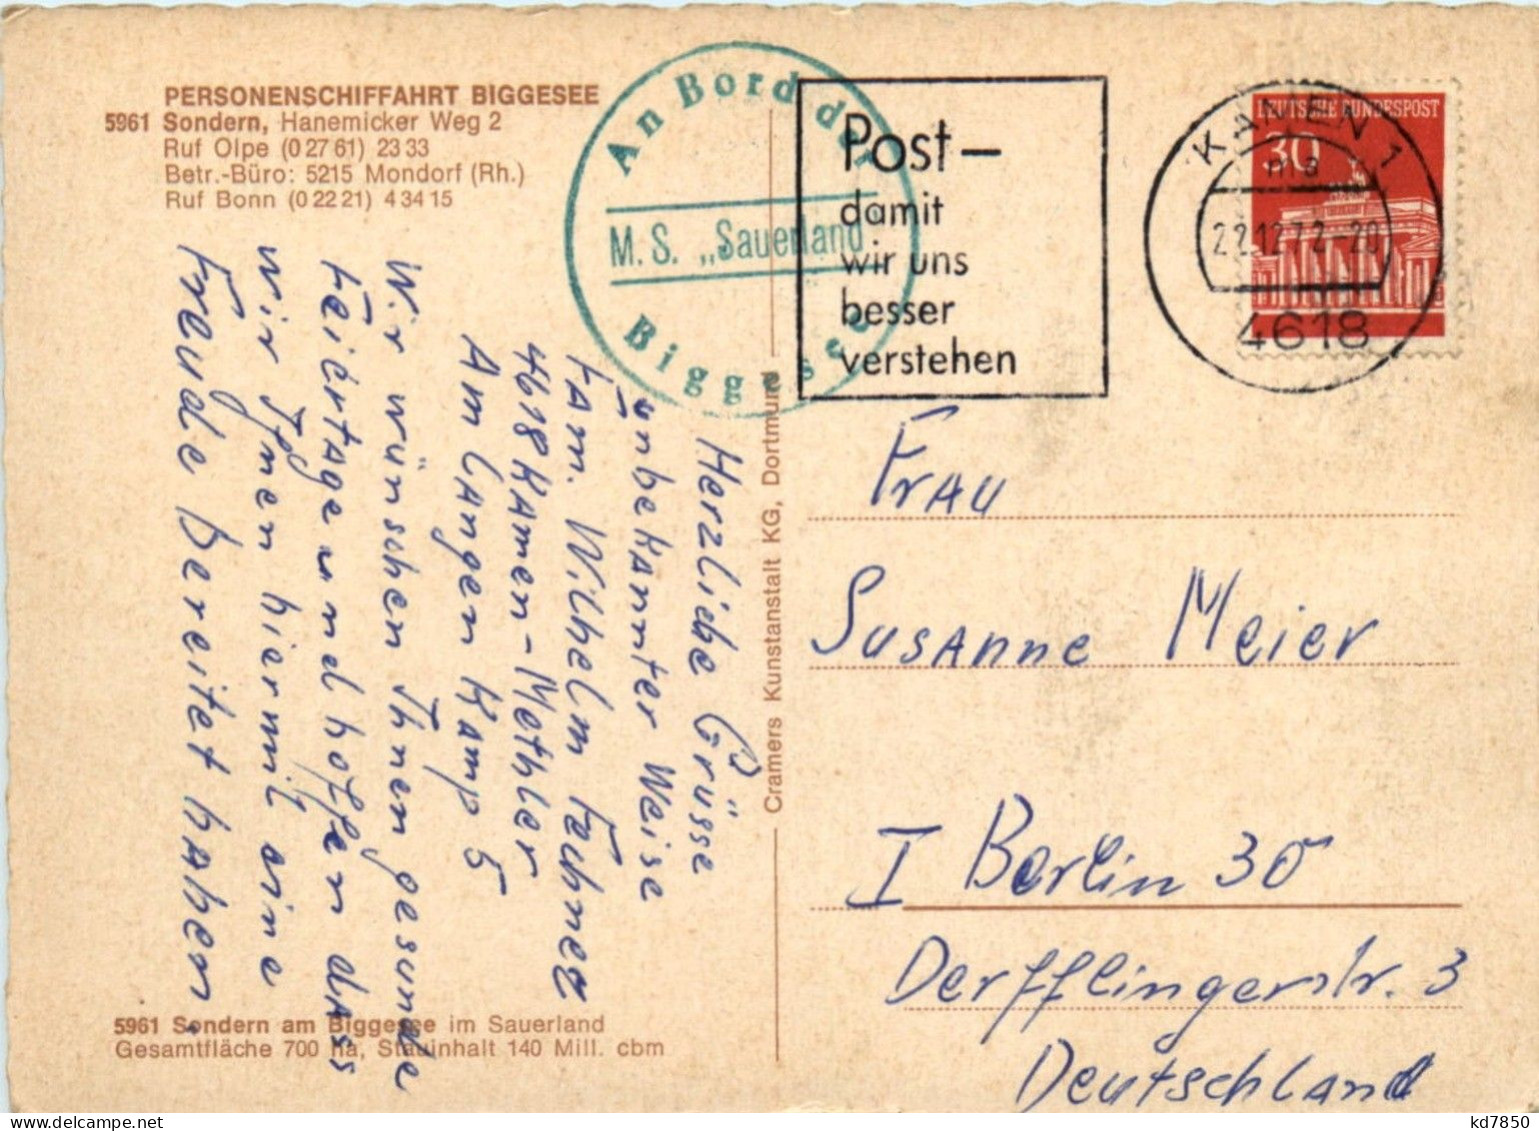 PERSONENSCHIFFAHRT BIGGESEE
5961 Sondern, Hanemicker Weg 2
Ruf Olpe (0 27 61) 23 33
Betr.-Büro: 5215 Mondorf (Rh.)
Ruf Bonn (0 22 21) 4 34 15
An Bord der
M. S. „Sauerland"
Biggesee
Post –
damit
wir uns
besser
verstehen
DEUTSCHE BUNDESPOST
30
KAMEN 1
ma
22.12.72-20
4618
Herzliebe Grüsse
unbekannter Weise
Fam. Wilhelm Fechner
4618 Kamen-Methler
Am Langen Kamp 5
Wir wünschen Ihnen gesunde
Feiertage und hoffen dass
wir Ihnen hiermit eine
Freude bereitet haben.
Cramers Kunstanstalt KG, Dortmund
Frau
Susanne Meier
I Berlin 30
Derfflingerstr. 3
Deutschland
5961 Sondern am Biggesee im Sauerland
Gesamtfläche 700 ha, Stauinhalt 140 Mill. cbm
kd7850